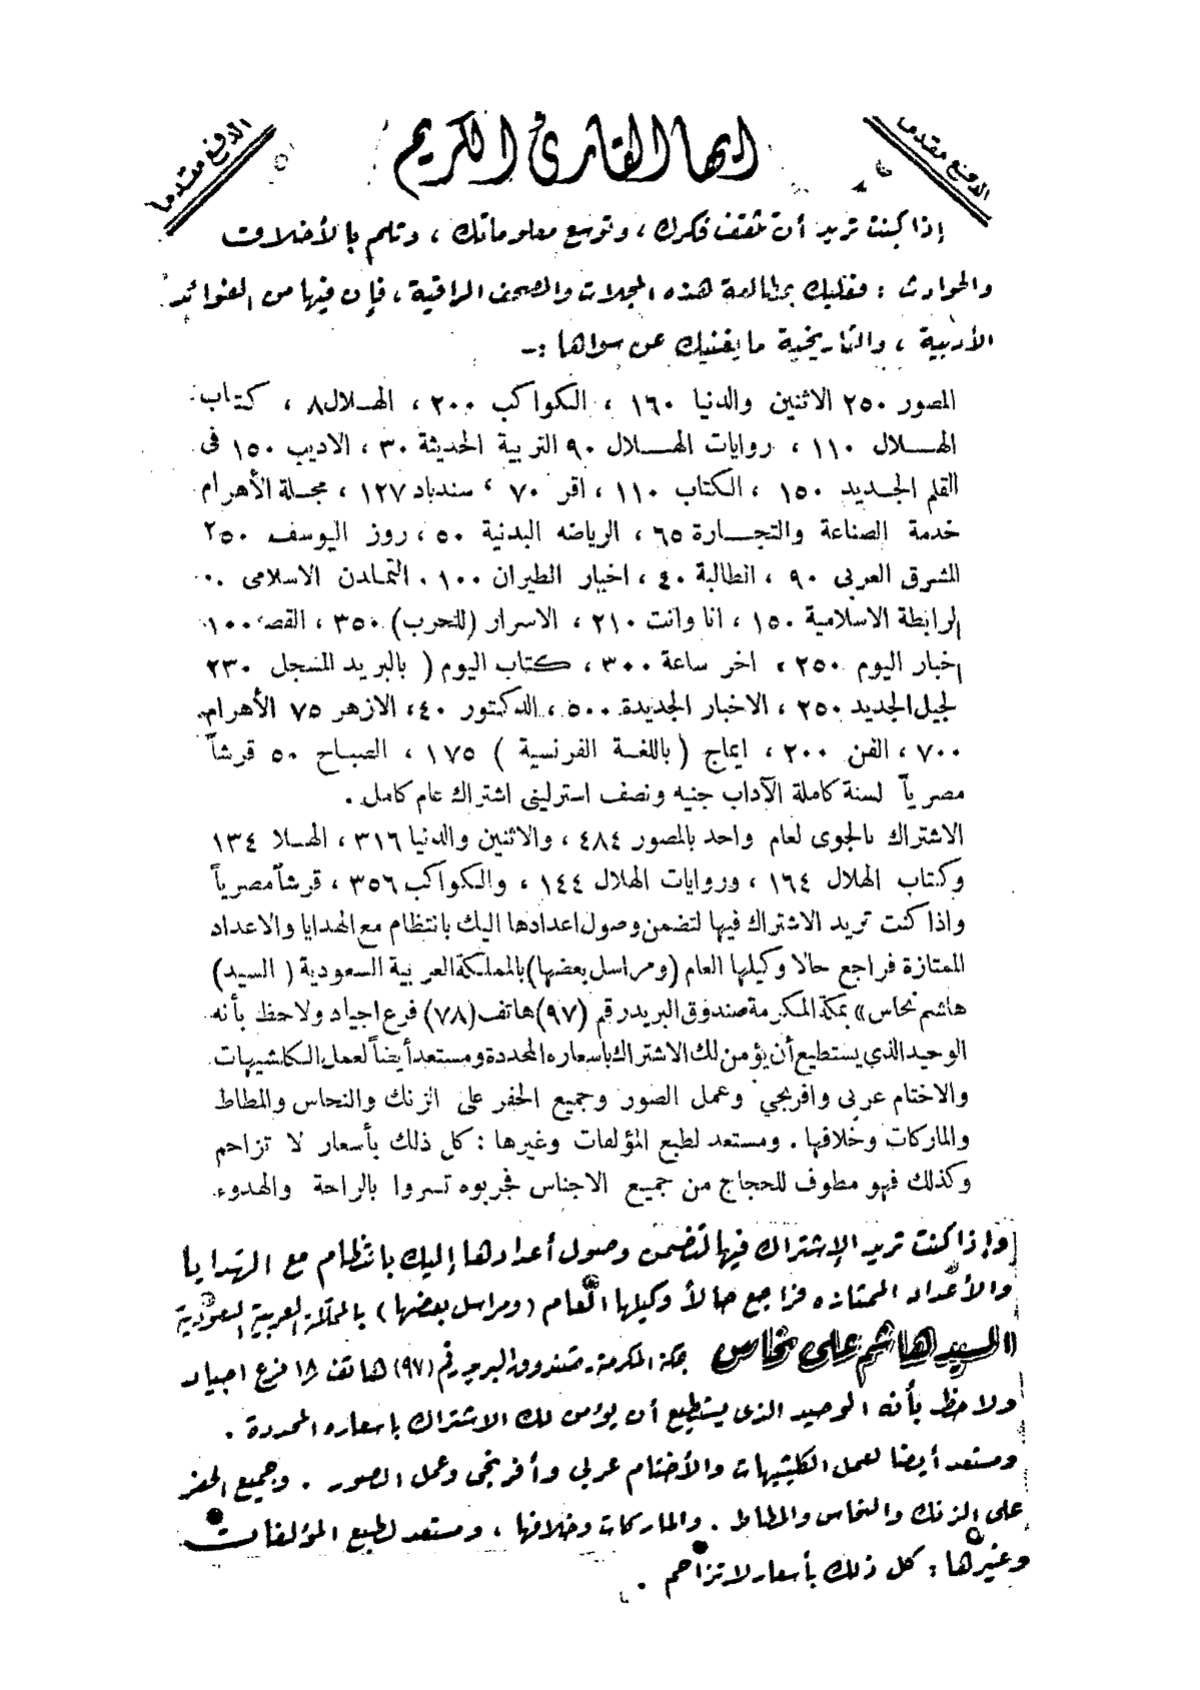 الدفع مقدما
ايها القارئ الكريم
الدفع مقدما
إذا كنت تريد أن تثقف فكرك ، وتوسع معلوماتك ، وتلم بالأخلاق
والحوادث : فعليك بمطالعة هذه المجلات والصحف الراقية ، فإن فيها من الفوائد
الأدبية ، والتاريخية ما يغنيك عن سواها :ـ
المصور ٢٥٠ الاثنين والدنيا ١٦٠ ، الكواكب ٢٠٠ ، الهـلال ٨ ، كتاب
الهـــلال ١١٠ ، روايات الهـــلال ٩٠ التربية الحديثة ٣٠ ، الاديب ١٥٠ فى
القلم الجـديد ١٥٠ ، الكتاب ١١٠ ، اقر ٧٠ ، سندباد ١٢٧ ، مجـلة الأهرام
خدمة الصناعة والتجـــارة ٦٥ ، الرياضه البدنية ٥٠ ، روز اليوسف ٢٥٠
المشرق العربى ٩٠ ، الطالبة ٤٠ ، اخبار الطيران ١٠٠ ، التمـادن الاسلامى
لرابطة الاسلامية ١٥٠ ، انا وانت ٢١٠ ، الاسرار (للحرب) ٣٥٠ ، القصة ١٠٠
إخبار اليوم ٢٥٠ ، اخر ساعة ٣٠٠ ، كتاب اليوم ( بالبريد المسجل ٢٣٠
لجيل الجديد ٢٥٠ ، الاخبار الجديدة ٥٠٠ ، الدكتور ٤٠ ، الازهر ٧٥ الأهرام
٧٠٠ ، الفن ٢٠٠ ، ايماج ( باللغة الفرنسية ) ١٧٥ ، الصباح ٥٠ قرشاً
مصرياً لسنة كاملة الآداب جنيه ونصف استرلينى اشتراك عام كامل .
الاشتراك بالجوى لعام واحد بالمصور ٤٨٤ ، والاثنين والدنيا ٣١٦ ، الهـلا ١٣٤
وكتاب الهلال ١٦٤ ، وروايات الهلال ١٤٤ ، والكواكب ٣٥٦ ، قرشاً مصرياً
واذا كنت تريد الاشتراك فيها لتضمن وصول اعدادها اليك بانتظام مع الهدايا والاعداد
الممتازة فراجع حالا وكيلها العام (ومراسل بعضها) بالمملكة العربية السعودية ( السيد)
هاشم نحاس» بمكة المكرمة صندوق البريد رقم (٩٧) هاتف (٧٨) فرع اجياد ولاحظ بأنه
الوحيد الذي يستطيع أن يؤمن لك الاشتراك باسعاره المحددة ومستعد أيضاً لعمل الكلشيهات
والاختام عربى وافرنجي وعمل الصور وجميع الحفر على الزنك والنحاس والمطاط
والماركات وخلافها . ومستعد لطبع المؤلفات وغيرها : كل ذلك بأسعار لا تزاحم
وكذلك فهو مطوف للحجاج من جميع الاجناس فجربوه تسروا بالراحة والهدوء.
وإذا كنت تريد الإشتراك فيها لتضمن وصول أعدادها إليك بانتظام مع الهدايا
والأعداد الممتازه فراجع حالاً وكيلها العام (ومراسل بعضها) بالمملكة العربية السعودية
(السيد هاشم على نحاس بمكة المكرمة ـ صندوق البريد رقم (٩٧) هاتف ٧٨ فرع اجياد
ولاحظ بأنه الوحيد الذى يستطيع أن يؤمن لك الاشتراك باسعاره المحددة .
ومستعد أيضا لعمل الكليشيهات والأختام عربي وأفرنجى وعمل الصور . وجميع الحفر
على الزنك والنحاس والمطاط . والماركات وخلافها ، ومستعد لطبع المؤلفات
وغيرها : كل ذلك بأسعار لا تزاحم .